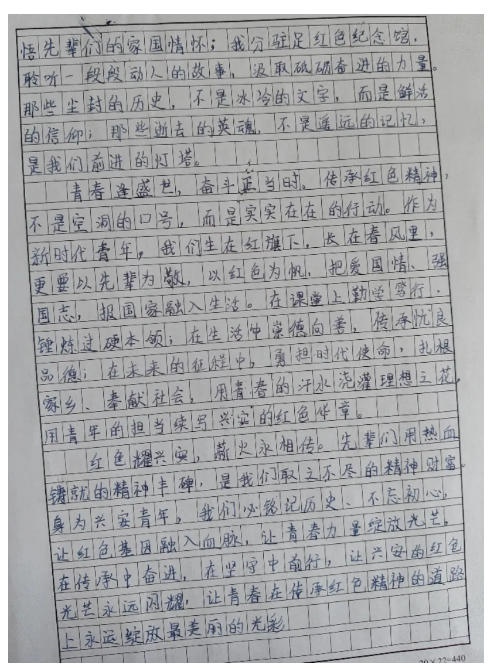 悟先辈们的家国情怀；我分驻足红色纪念馆，
聆听一段段动人的故事，汲取砥砺奋进的力量。
那些尘封的历史，不是冰冷的文字，而是鲜活
的信仰；那些逝去的英魂，不是遥远的记忆，
是我们前进的灯塔。
青春逢盛世，奋斗正当时。传承红色精神，
不是空洞的口号，而是实实在在的行动。作为
新时代青年，我们生在红旗下，长在春风里，
更要以先辈为，以红色为帆，把爱国情、强
国志，报国家融入生活。在课堂上勤学笃行，
锤炼过硬本领；在生活中崇德向善，传承优良
品德；在未来的征程中，勇担时代使命，扎根
家乡、奉献社会，用青春的汗水浇灌理想之花，
用青年的担当续写兴安的红色华章。
红色耀兴安，薪火永相传。先辈们用热血
铸就的精神丰碑，是我们取之不尽的精神财富。
身为兴安青年，我们必铭记历史、不忘初心，
让红色基因融入血脉，让青春力量绽放光芒，
在传承中奋进，在坚守中前行，让兴安的红色
光芒永远闪耀，让青春在传承红色精神的道路
上永远绽放最美丽的光彩
20×22=440